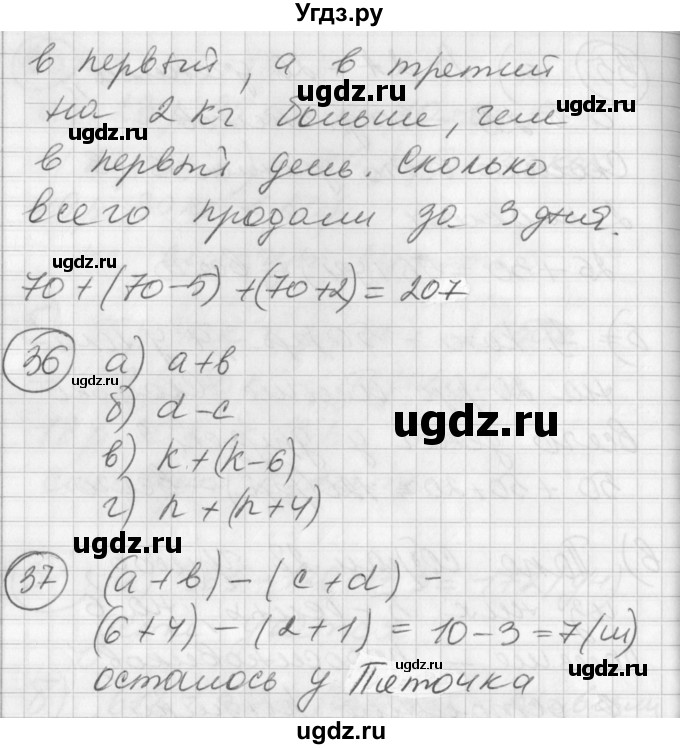 Угдз.ру
в первый, а в третий
на 2 кг больше, чем
в первый день. Сколько
всего продали за 3 дня.
70+(70-5)+(70+2)=207
36 а) a+b
б) d-c
в) k+(k-6)
г) n+(n+4)
37 (a+b)-(c+d)-
(6+4)-(2+1)=10-3=7(ш)
осталось у Пяточка
ugdz.ru
ugdz.ru
ugdz.ru
ugdz.ru
ugdz.ru
ugdz.ru
ugdz.ru
ugdz.ru
ugdz.ru
ugdz.ru
ugdz.ru
ugdz.ru
ugdz.ru